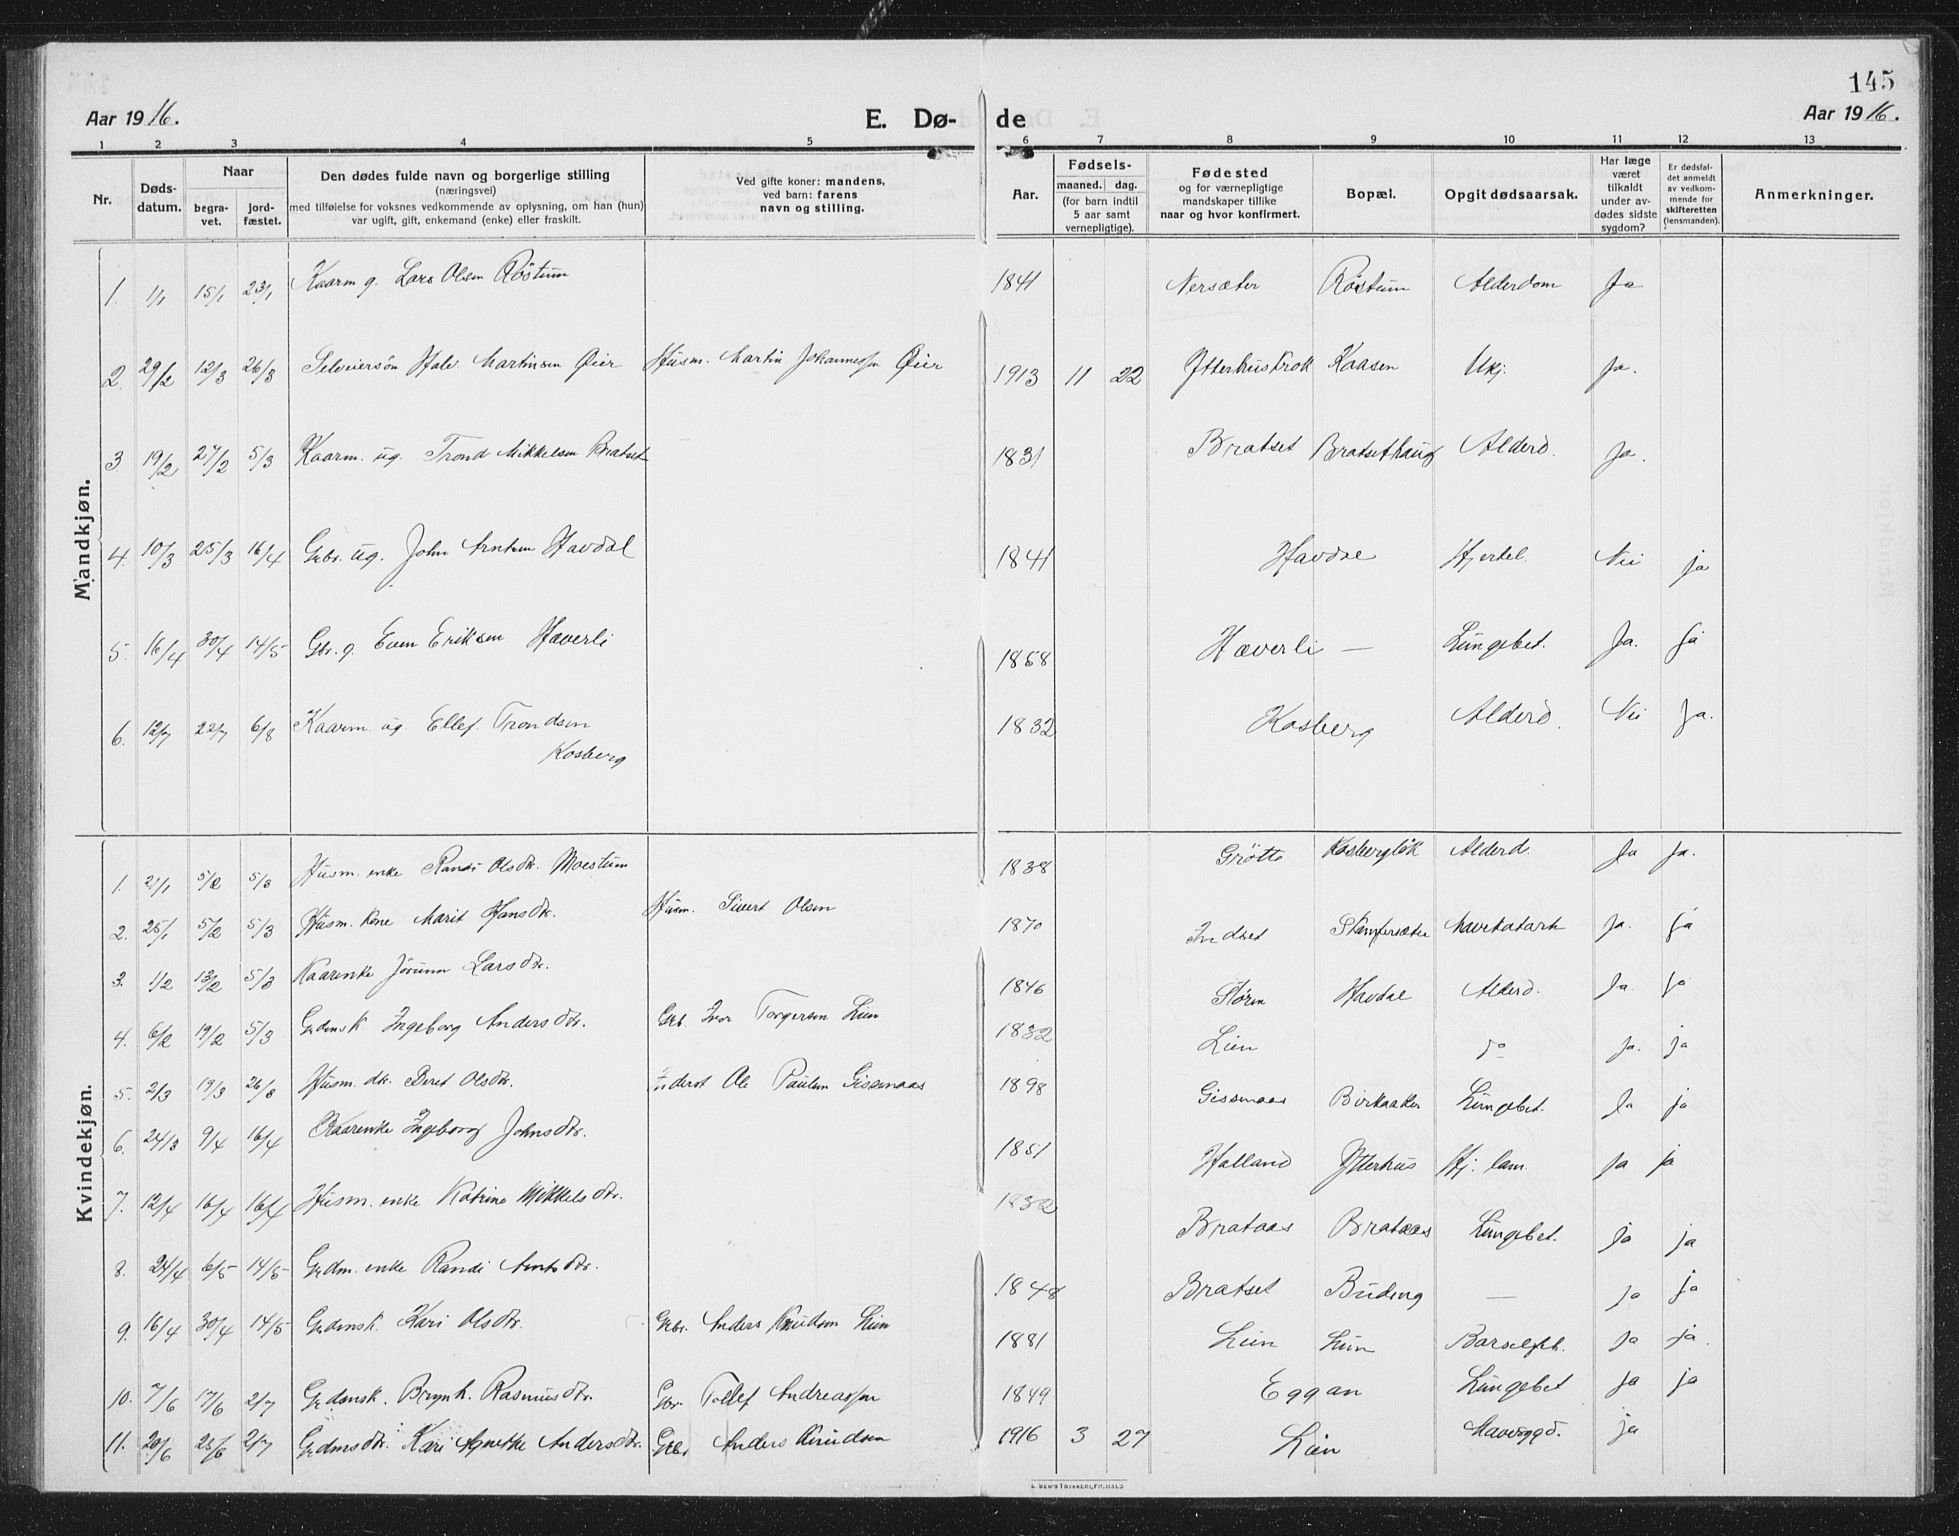 145
Aar 1916.
E. Dø-
de
Aar 1916.
1 2 3 4 5 6 7 8 9 10 11 12 13
Nr.
Døds-
datum.
Naar
begra-
vet.
jord-
fæstet.
Den dødes fulde navn og borgerlige stilling
(næringsvei)
med tilføielse for voksnes vedkommende av oplysning, om han (hun)
var ugift, gift, enkemand (enke) eller fraskilt.
Ved gifte koner: mandens,
ved barn: farens
navn og stilling.
Aar.
Fødsels-
maaned. dag.
(for barn indtil
5 aar samt
vernepligtige).
Fødested
og for værnepligtige
mandskaper tillike
naar og hvor konfirmert.
Bopæl.
Opgit dødsaarsak.
Har læge
været
tilkaldt
under av-
dødes sidste
sygdom?
Er dødsfal-
det anmeldt
av vedkom-
mende for
skifteretten
(lensmanden).
Anmerkninger.
Mandkjøn.
1. 1/1 15/1 23/1 Kaarm g. Lars Olsen Röstum 1841 Nersæter Röstum Alderdom Ja
2. 29/2 12/3 26/3 Selveiersön Halv Martinsen Øier Husm. Martin Johannessen Øier 1913 11 22 Ytterhuskrok Kaasen Ukj. Ja.
3 19/2 27/2 5/3 Kaarm. ug. Trond Mikkelsen Bratset 1831 Bratset Bratsethaug Alderd. Ja.
4. 10/3 25/3 16/4 Gbr. ug. John Arntsen Havdal 1841 Havdal Hjertel. Nei ja
5. 16/4 30/4 14/5 Gbr. g. Even Eriksen Hæverli 1868 Hæverli — Lungebet. Ja. ja
6. 12/7 22/7 6/8 Kaarm ug Ellef Trondsen
Kosberg 1832 Kosberg Alderd. Nei Ja.
Kvindekjøn.
1. 21/1 5/2 5/3 Husm. enke Randi Olsdtr. Moestum 1838 Grötte Kosbergløk Alderd. Ja ja.
2. 25/1 5/2 5/3 Husm. kone Marit Hansdtr. Husm. Sivert Olsen 1870 Indset Stampesæter Mavekatarh Ja. ja
3. 1/2 13/2 5/3 Kaarenke Jörunn Larsdtr. 1846 Stören Havdal Alderd. Ja ja
4. 6/2 19/2 5/3 Grdmsk Ingeborg Andersdtr. Gbr. Ivor Torgersen Lien 1832 Lien do ja. ja
5. 2/3 19/3 26/3 Husm. dtr. Beret Olsdtr. Inderst Ole Paulsen Gissmaas 1898 Gissmaas Birkaaker Lungebet. Ja ja
6. 24/3 9/4 16/4 Kaarenke Ingeborg Johnsdtr. 1851 Halland Ytterhus Hj. lam. ja ja
7. 12/4 16/4 16/4 Husm. enke Katrine Mikkelsdtr. 1832 Brataas Brataas Lungebet. ja ja
8. 24/4 6/5 14/5 Grdm. enke Randi Arntsdtr. 1848 Bratset Buding — ja ja
9. 16/4 30/4 14/5 Grdmsk. Kari Olsdtr. Gbr. Anders Knudsen Lien 1881 Lien Lien Barselfeb. ja ja.
10. 7/6 17/6 2/7 Grdmsk. Brynh. Rasmusdtr. Gbr. Tollef Andreassen 1849 Eggan Lungebet ja ja
11. 20/6 25/6 2/7 Grdmsdtr. Kari Agnethe Andersdtr. Gbr. Anders Knudsen 1916 3 27 Lien ja